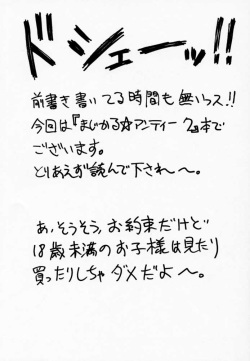 ドシェーッ!!
前書き書いてる時間も無いっス!!
今回は『まじかる☆アンティーク』本で
ございます。
とりあえず読んで下され〜。
あ、そうそう、お約束だけど
18歳未満のお子様は見たり
買ったりしちゃダメだよ〜。